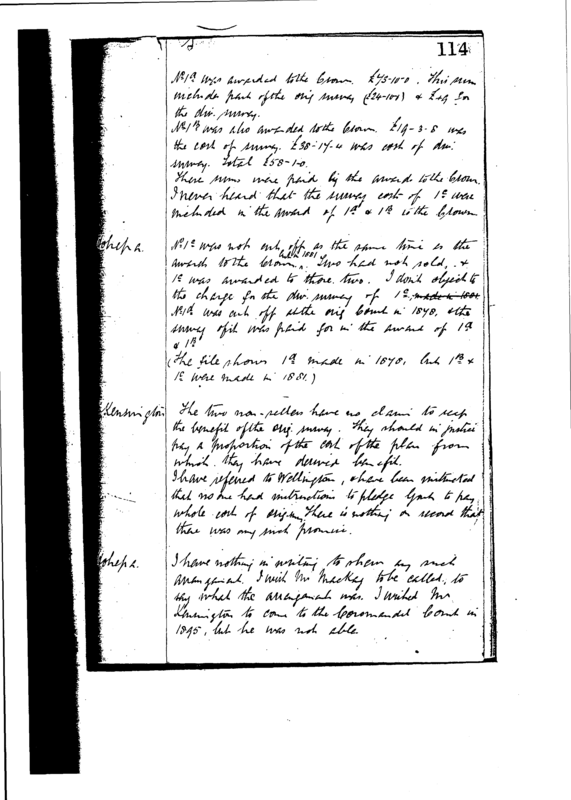 114
No 1A was awarded to the Crown. £73-10-0. This sum
includes part of the orig survey (£24-10s) & £49 for
the div. survey.
No 1B was also awarded to the Crown. £19-3-8 was
the cost of survey. £38-17-4 was cost of div.
survey. Total £58-1-0.
These sums were paid by the awards to the Crown.
I never heard that the survey cost of 1C were
included in the award of 1A & 1B to the Crown
No 1C was not cut off at the same time as the
awards to the Crown, but in 1881. Two had not sold, &
1C was awarded to those two. I don't object to
the charge for the div. survey of 1C, made in 1881
No 1A was cut off at the orig Court in 1878, & the
survey of it was paid for in the award of 1A
& 1B
(The file shows 1A made in 1878, but 1B &
1C were made in 1881.)
Kensington The two non-sellers have no claim to reap
the benefit of the orig. survey. They should in justice
pay a proportion of the cost of the plan from
which they have derived benefit.
I have referred to Wellington, & have been instructed
that no one had instructions to pledge Govt to pay
whole cost of orig. There is nothing on record that
there was any such promise.
I have nothing in writing to show any such
arrangement. I wish Mr Mackay to be called, to
say what the arrangement was. I wished Mr
Kensington to come to the Coromandel Court in
1895, but he was not able.